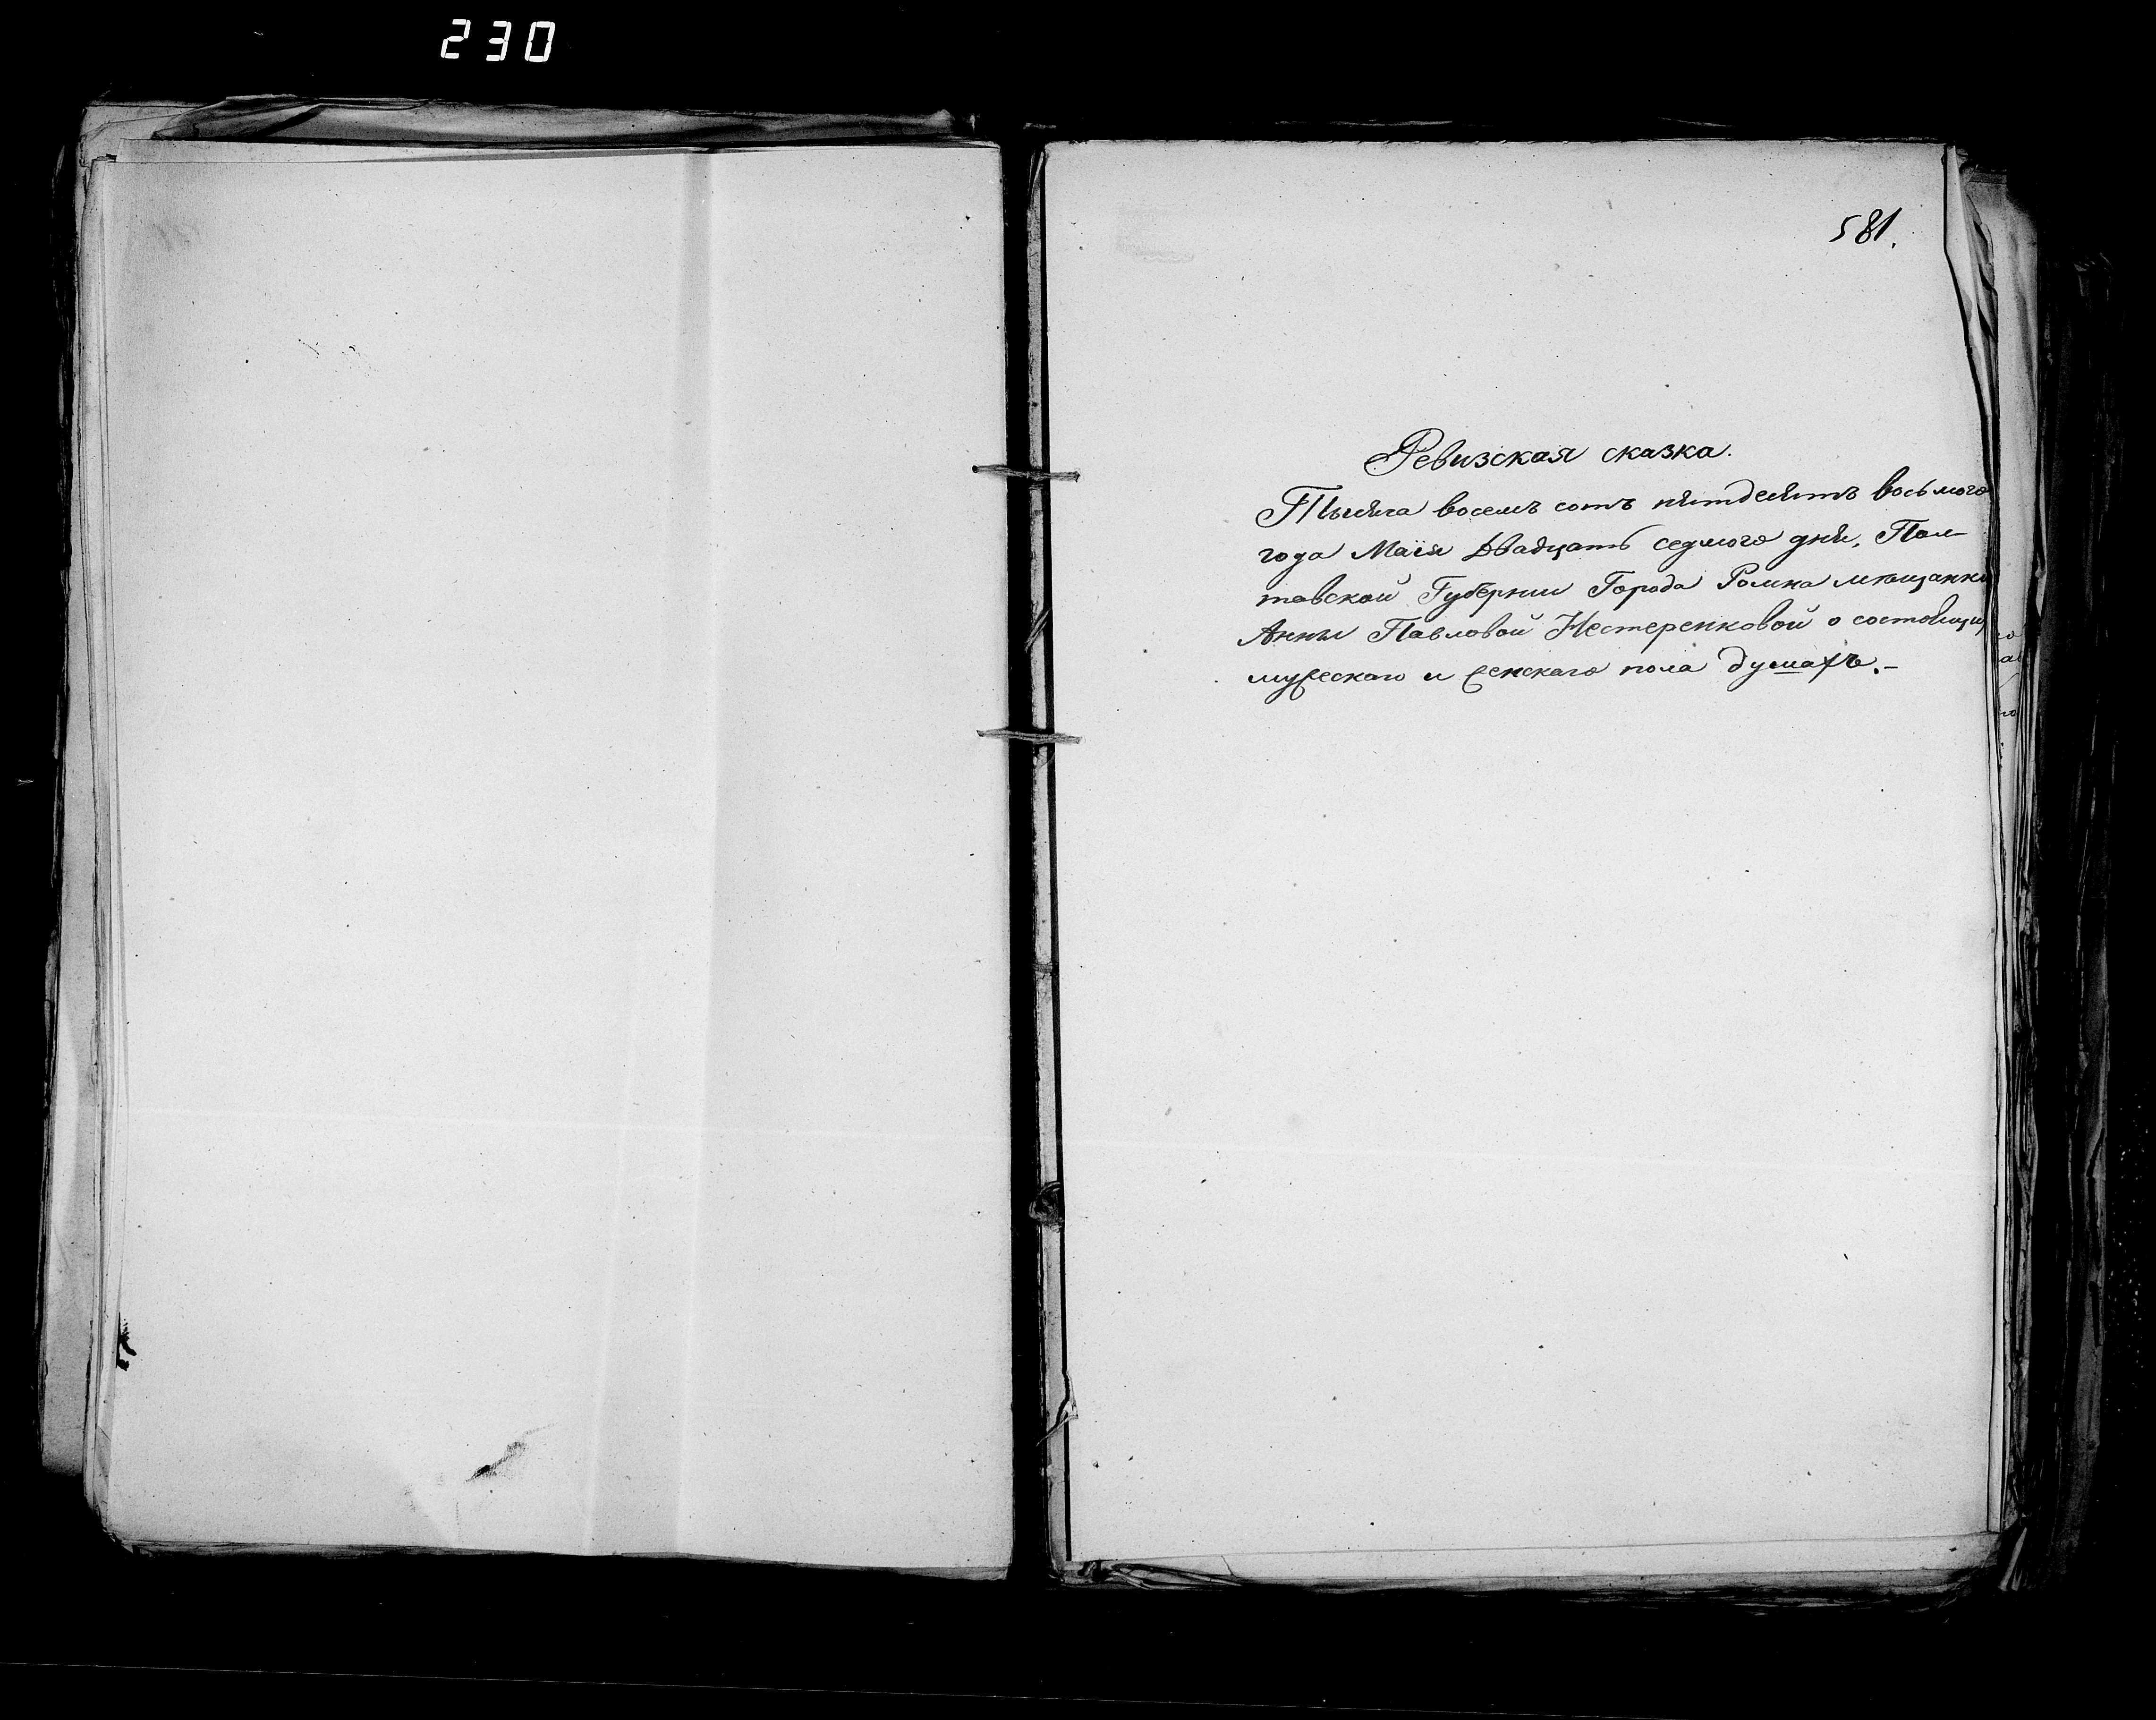 230
581.
Ревизская сказка.
Тысяча восемъ сотъ пятдесятъ восьмого
года Маія Двадцать седмого дня, Пол-
тавской Губерніи Города Ромна мѣщанки
Анны Павловой Нестеренковой о состоящи
мужескаго и женскаго пола душахъ.-